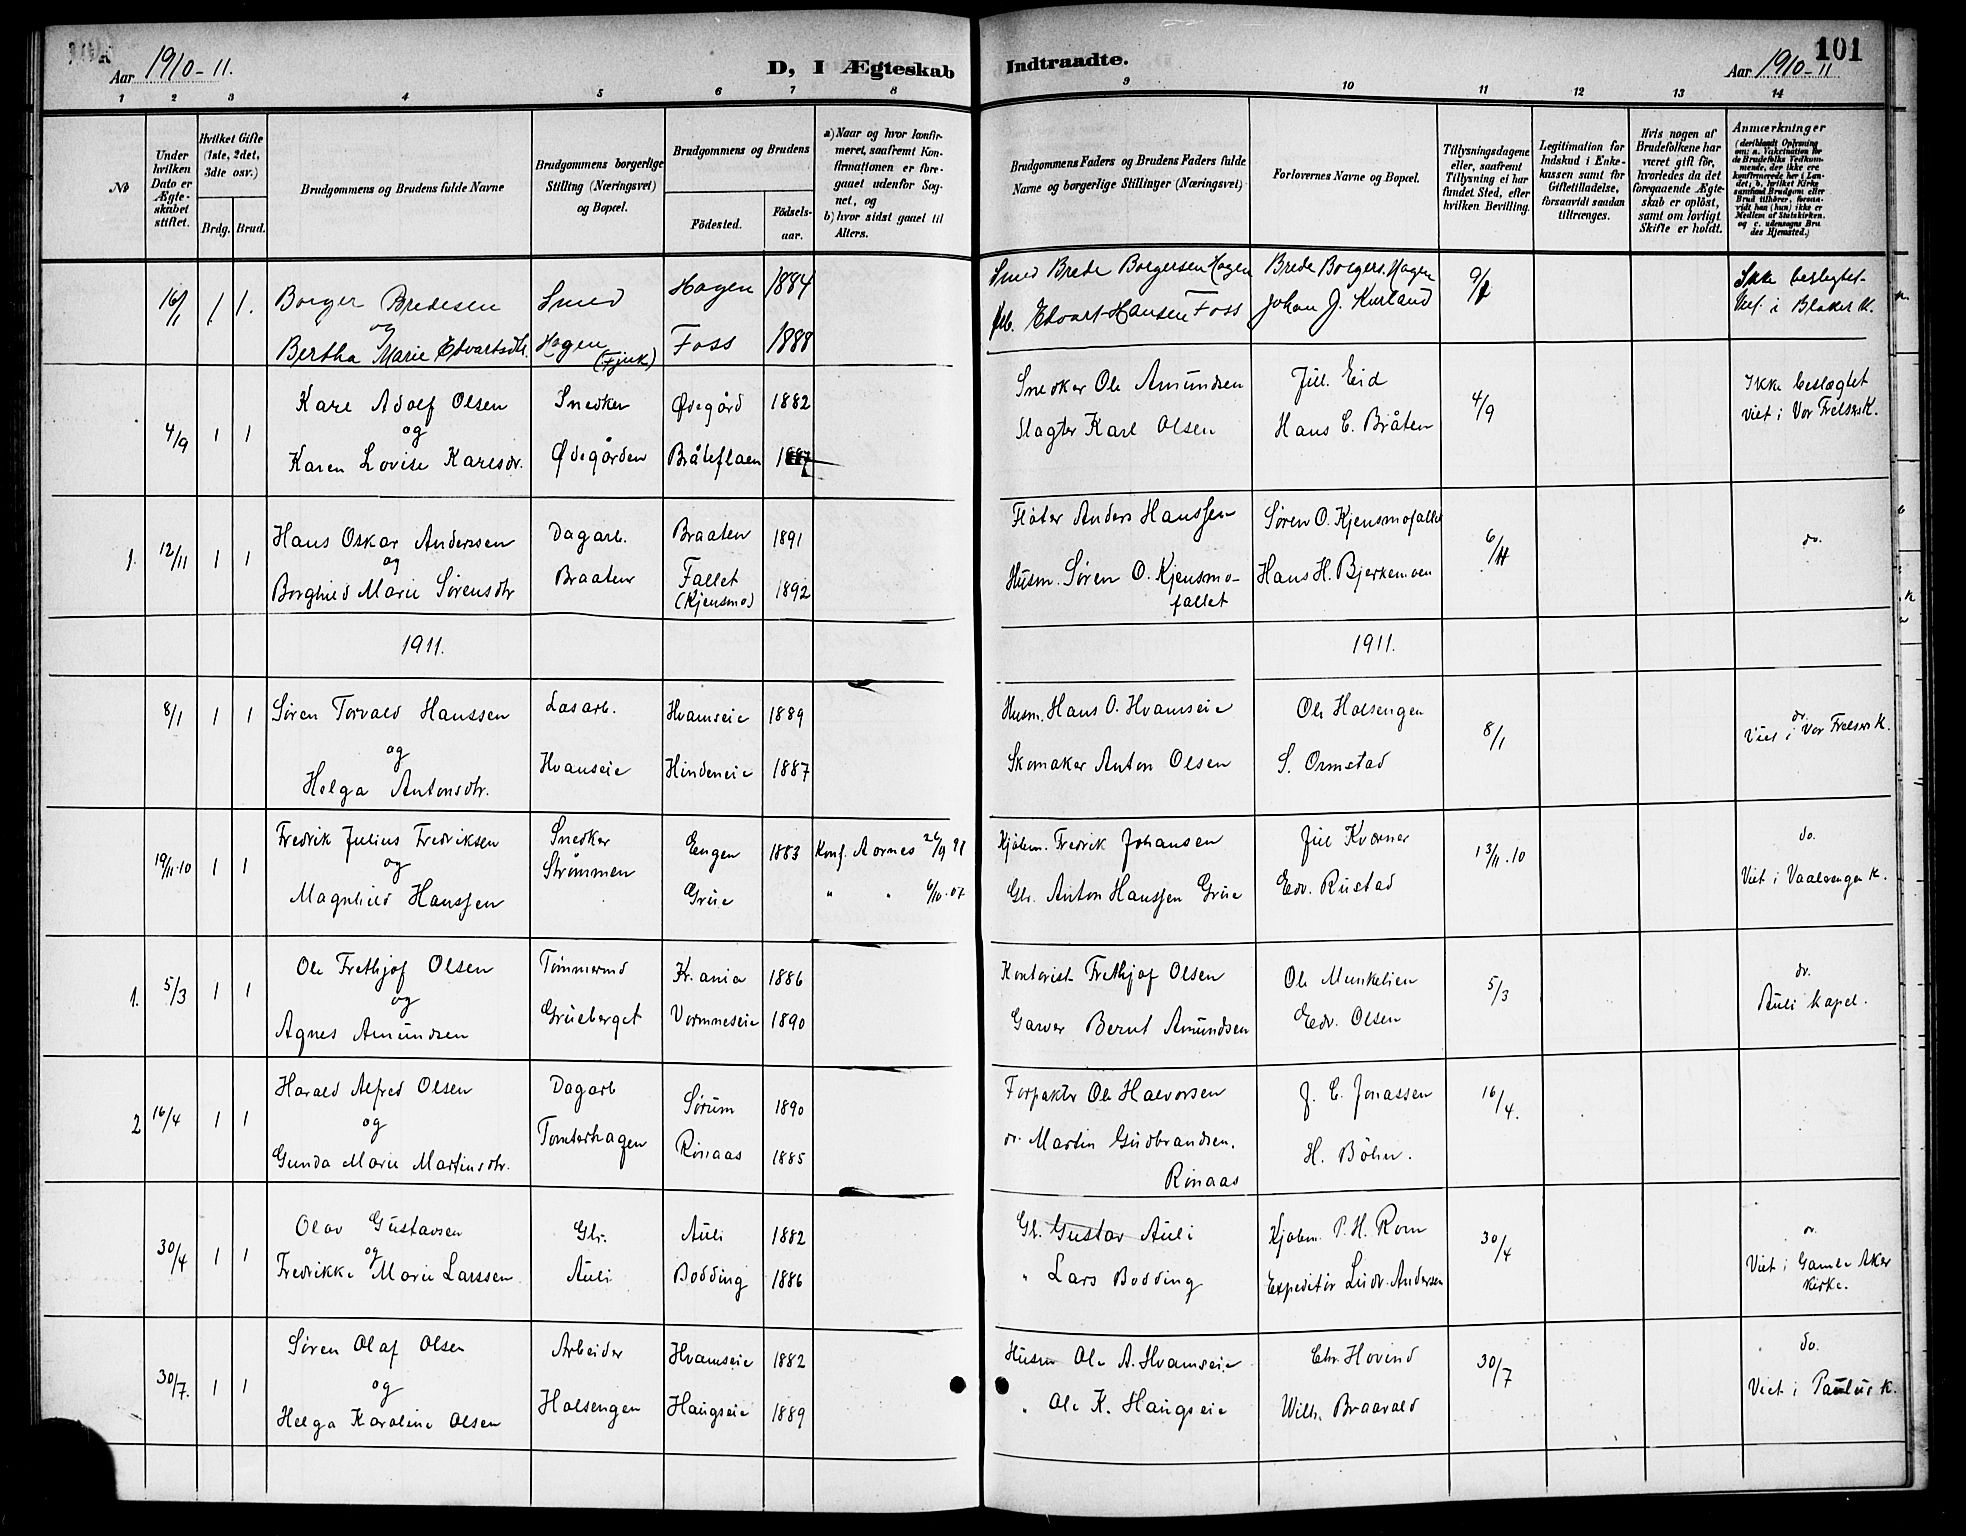 Aar 1910-11.
D, I Ægteskab Indtraadte.
Aar 1910-11
101
1 2 3 4 5 6 7 8 9 10 11 12 13 14
No
Under hvilken Dato er Ægteskabet stiftet.
Hvilket Gifte (1ste, 2det, 3die osv.)
Brdg. Brud.
Brudgommens og Brudens fulde Navne
Brudgommens borgerlige Stilling (Næringsvei) og Bopæl.
Brudgommens og Brudens
Fødested.
Fødselsaar.
a) Naar og hvor konfirmeret, saafremt Konfirmationen er foregaaet udenfor Sognet, og
b) hvor sidst gaaet til Alters.
Brudgommens Faders og Brudens Faders fulde Navne og borgerlige Stillinger (Næringsvei)
Forlovernes Navne og Bopæl.
Tillysningsdagene eller, saafremt Tillysning ei har fundet Sted, efter hvilken Bevilling.
Legitimation for Indskud i Enkekassen samt for Giftetilladelse, forsaavidt saadan tiltrænges.
Hvis nogen af Brudefolkene har været gift før, hvorledes da det foregaaende Ægteskab er opløst, samt om lovligt Skifte er holdt.
Anmærkninger (deriblandt Oplysning om: a. Vakcination for de Brudefolks Vedkommende, der ikke ere konfirmerede her i Landet; b. hvilket Kirkesamfund Brudgom eller Brud tilhører, forsaavidt han (hun) ikke er Medlem af Statskirken. og c. udensogns Brudes Hjemsted.)
16/11 1. 1. Borger Bredesen Smed Hagen 1884 Smed Brede Borgersen Hagen Brede Borgers. Hagen Ikke beslegtet
og
Bertha Marie Edvartsdtr. Hagen (Fjuk) Foss 1888 Edvart Hansen Foss Johan J. Kurland i Blaker K.
4/9 1 1 Karl Adolf Olsen Snedker Ødegård 1882 Snedker Ole Amundsen Jul. Eid 4/9 Ikke beslægtet
og
Karen Lovise Karlsdr. Ødegården Bråteflaen Slagter Karl Olsen Hans E. Bråten viet i Vor Frelsers K.
1. 12/11 1 1 Hans Oskar Anderssen Dagarb. Braaten 1891 Fløter Anders Hanssen Søren O. Kjensmofallet 6/11 do.
og
Borghild Marie Sørensdtr Braaten Fallet (Kjensmo) 1892 Husm. Søren O. Kjensmofallet Hans H. Bjerkemoen
1911. 1911.
8/1 1 1 Søren Torvald Hanssen Løsarb. Hvamseie 1889 Husm. Hans O. Hvamseie Ole Holsengen 8/1 do.
og
Helga Antonsdtr. Hvamseie Hindeneie 1887 Skomaker Anton Olsen S. Ormstad Viet i Vor Frelsers K.
19/11.10 1 1 Fredrik Julius Fredriksen Snedker Engen 1883 Konf. Aarnes Kjøbm. Fredrik Johansen Jul Kværner 13/11.10 do.
og
Magnhild Hanssen Strømmen Grue " " 6/10.07 Gbr. Anton Hanssen Grue Edv. Rustad Viet i Vaalerengen K.
1. 5/3 1 1 Ole Frethjof Olsen Tømmermd Kr.ania 1886 Kontorist Frethjof Olsen Ole Munkelien 5/3 do.
og
Agnes Amundsen Grueberget Vormneseie 1890 Garver Bernt Amundsen Edv. Olsen Auli kapel.
2 16/4 1 1 Harald Alfred Olsen Dagarb Sørum 1890 Forpakter Ole Halvorsen J. C. Jonassen 16/4.
og
Gunda Marie Martinsdtr. Tomterhagen Rønaas 1885 do. Martin Gudbrandsen. Rønaas H. Böhn.
30/4 1 1 Olav Gustavsen Gbr. Auli 1882 Gb. Gustav Auli Kjøbm. P. H. Rom 30/4 do.
og
Fredrikke Marie Larssen Auli Bodding 1886 " Lars Bodding Expeditør Ludv. Andersen Viet i Gamle Aker kirke.
30/7. 1 1 Søren Olaf Olsen Arbeider Hvamseie 1882 Husm Ole A. Hvamseie Chr. Hovind 30/7 do.
og
Helga Karoline Olsen Holsengen Haugseie 1889 " Ole K. Haugseie Wilh. Braarald Viet i Paulus K.